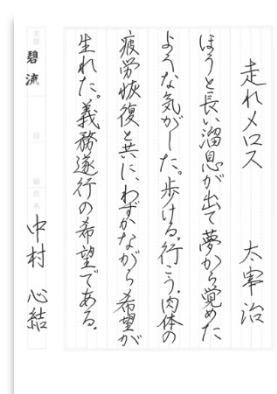 走れメロス
太宰治
ほうと長い溜息が出て夢から覚めた
ような気がした。歩ける。行こう。肉体の
疲労恢復と共に、わずかながら希望が
生れた。義務遂行の希望である。
碧流
中村 心結